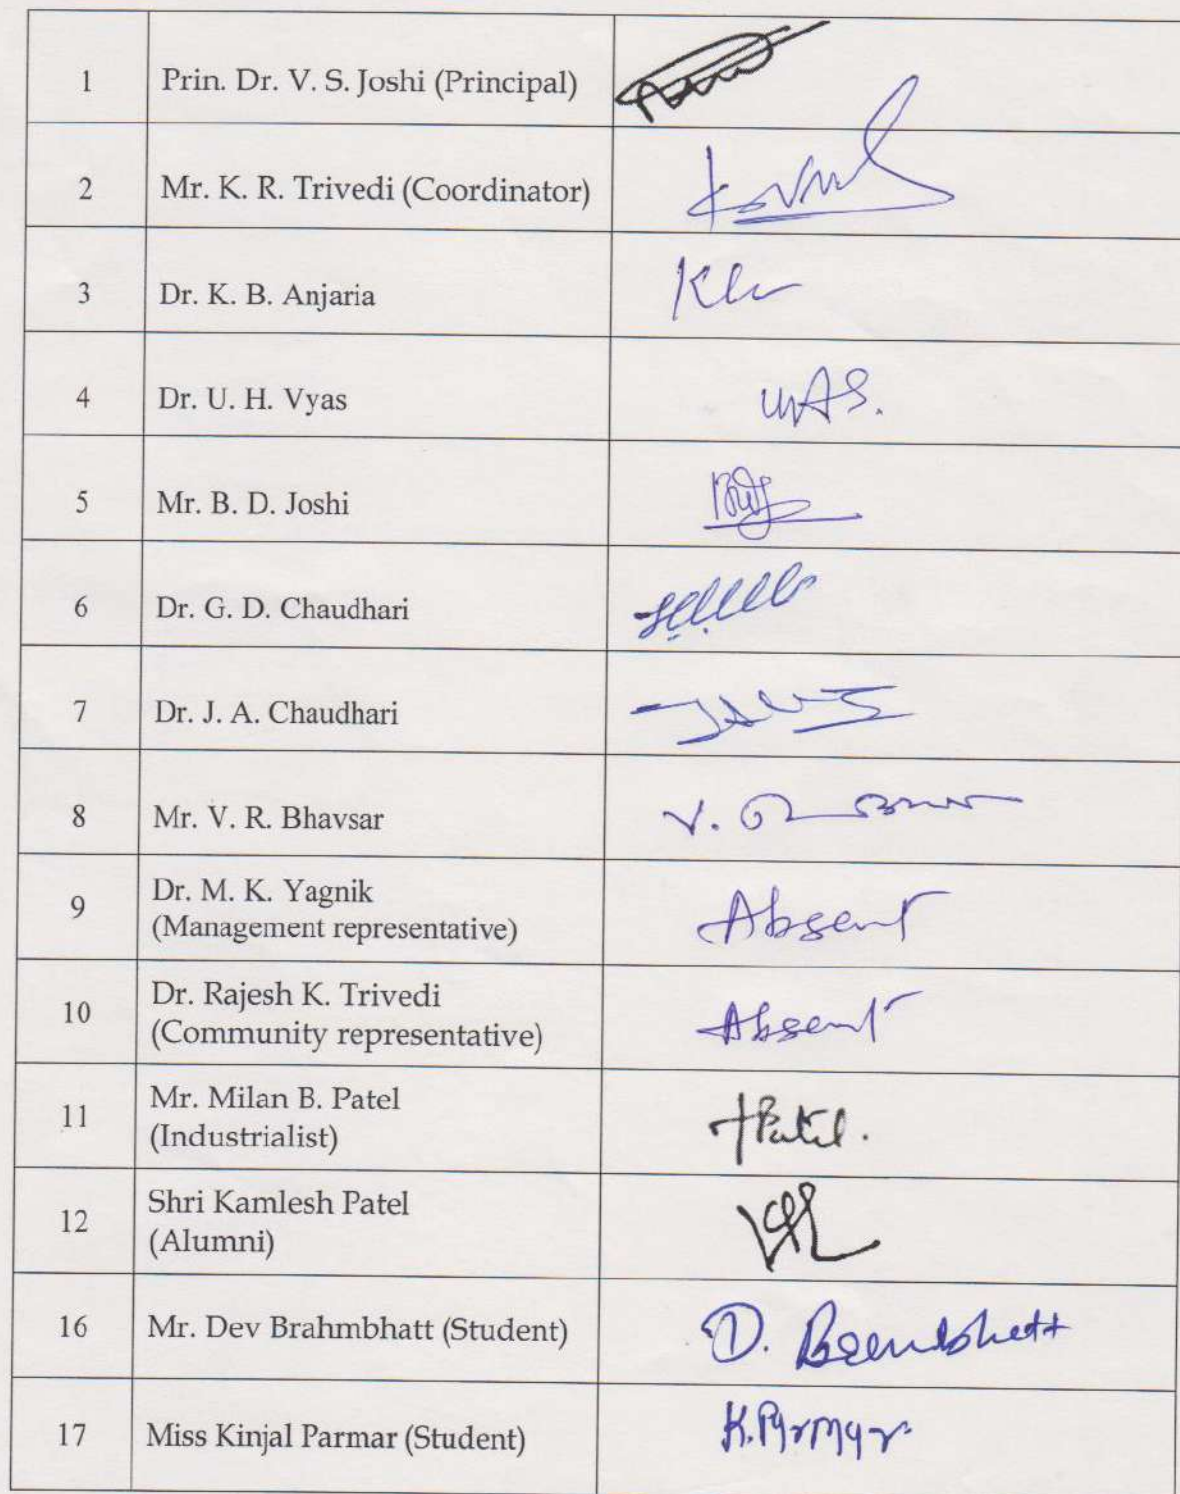 1 Prin. Dr. V. S. Joshi (Principal)
2 Mr. K. R. Trivedi (Coordinator)
3 Dr. K. B. Anjaria
4 Dr. U. H. Vyas
5 Mr. B. D. Joshi
6 Dr. G. D. Chaudhari
7 Dr. J. A. Chaudhari
8 Mr. V. R. Bhavsar
9 Dr. M. K. Yagnik
(Management representative) Absent
10 Dr. Rajesh K. Trivedi
(Community representative) Absent
11 Mr. Milan B. Patel
(Industrialist)
12 Shri Kamlesh Patel
(Alumni)
16 Mr. Dev Brahmbhatt (Student)
17 Miss Kinjal Parmar (Student) K. Parmar